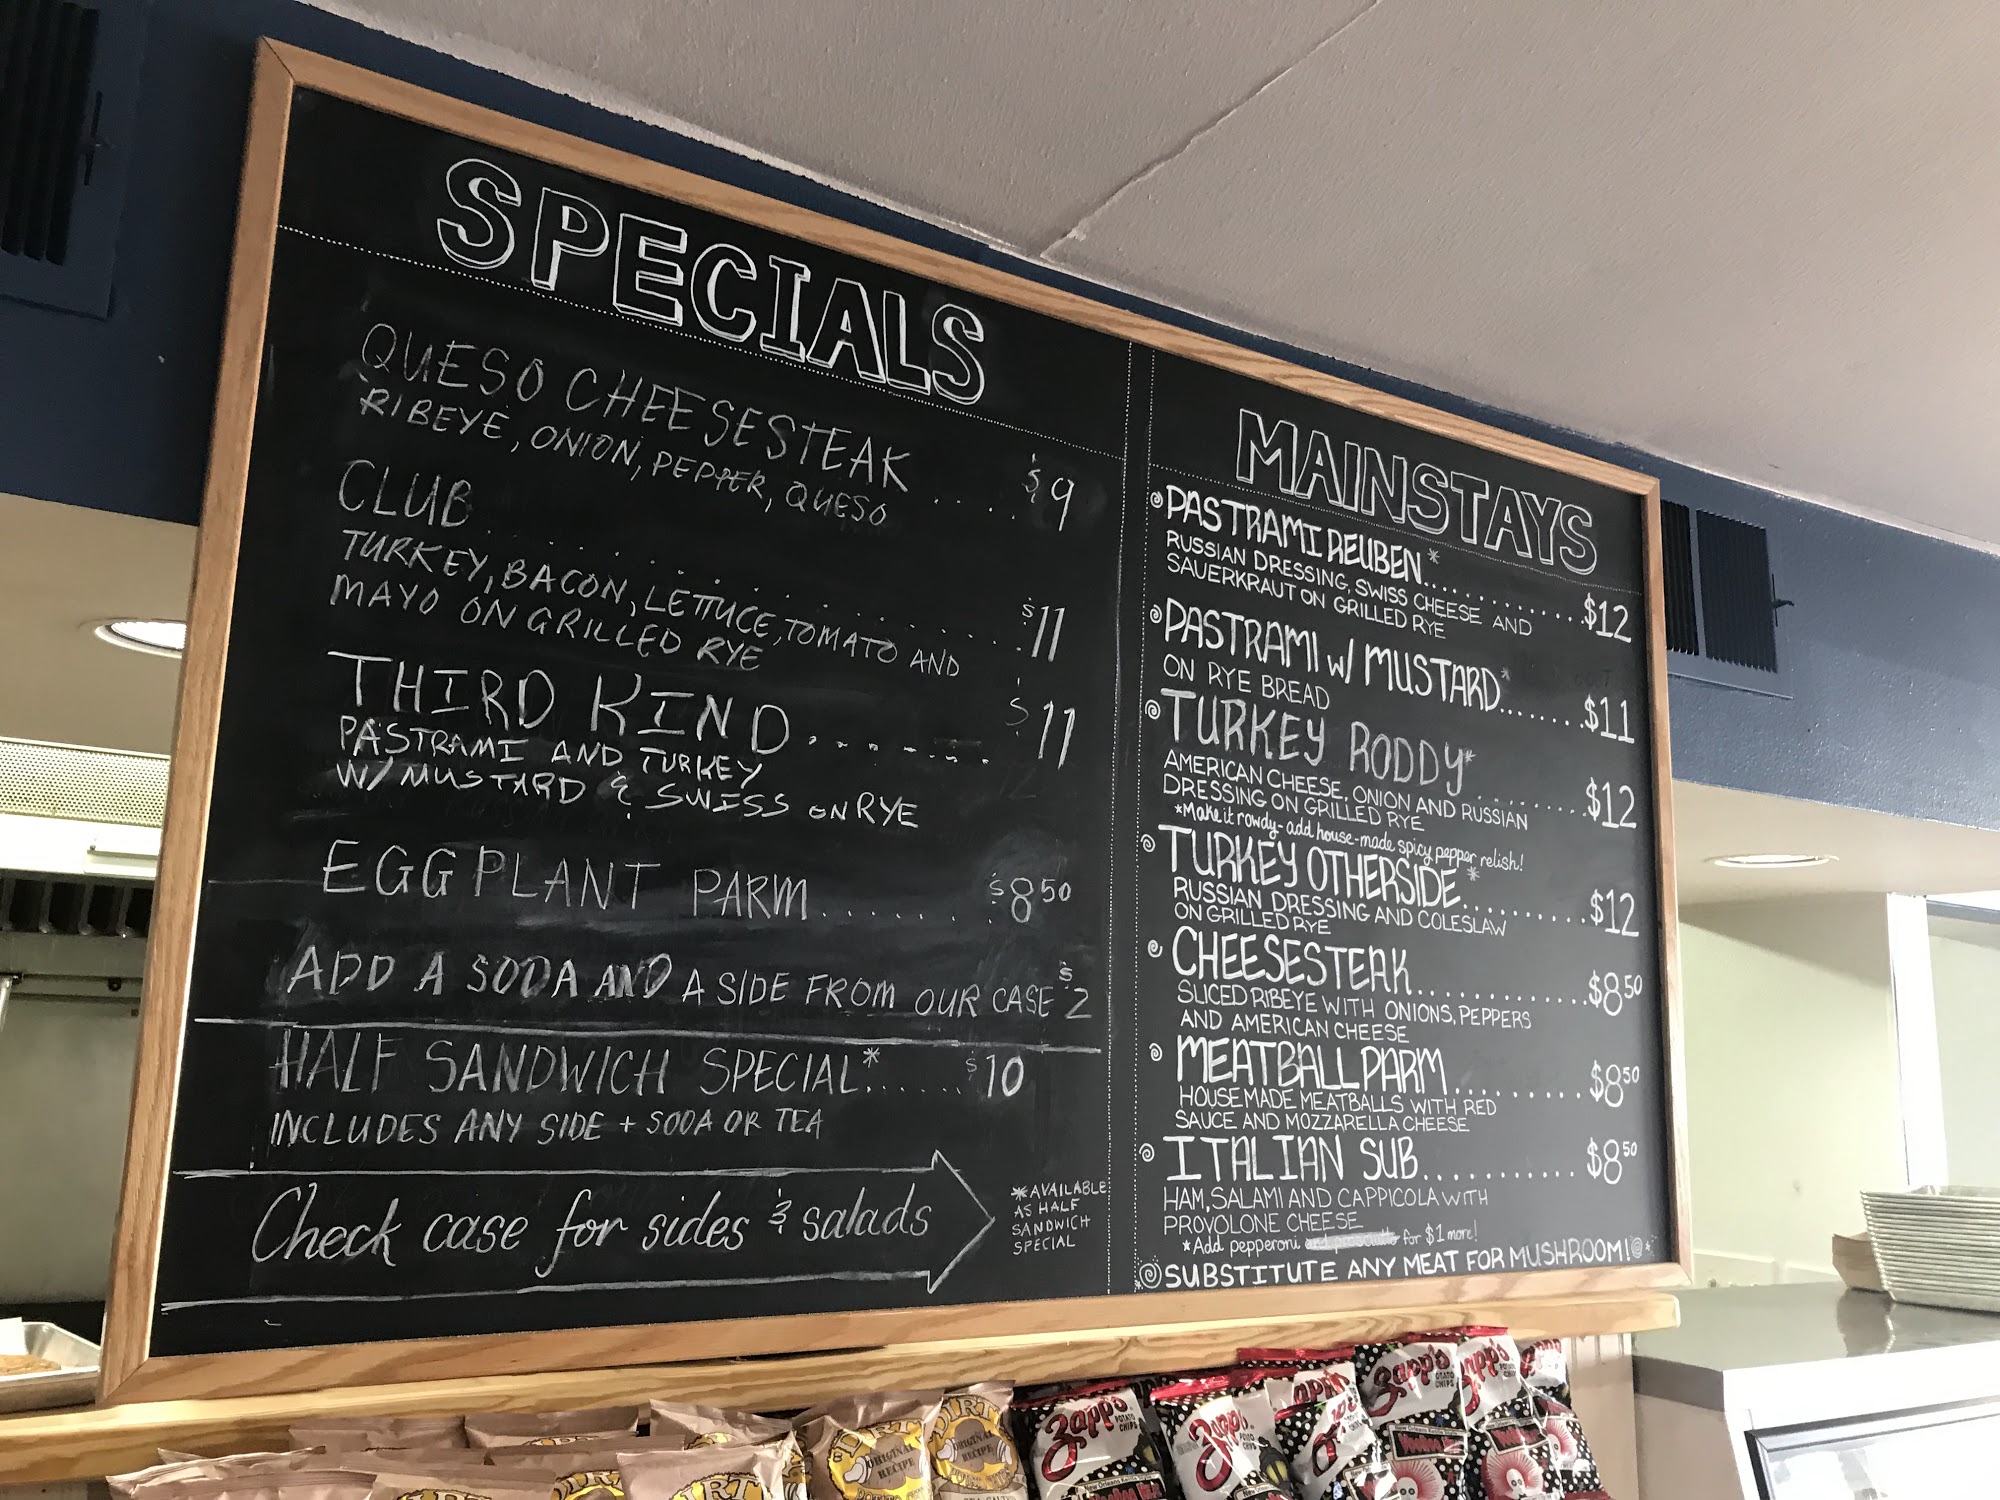 SPECIALS
QUESO CHEESESTEAK . . . . $9
RIBEYE, ONION, PEPPER, QUESO
CLUB . . . . . . . . . . . . . . $11
TURKEY, BACON, LETTUCE, TOMATO AND
MAYO ON GRILLED RYE
THIRD KIND . . . . . . . . $11
PASTRAMI AND TURKEY
W/ MUSTARD & SWISS ON RYE
EGGPLANT PARM . . . . . . . $8 50
ADD A SODA AND A SIDE FROM OUR CASE $2
HALF SANDWICH SPECIAL* . . . . . . $10
INCLUDES ANY SIDE + SODA OR TEA
Check case for sides & salads
*AVAILABLE
AS HALF
SANDWICH
SPECIAL
MAINSTAYS
PASTRAMI REUBEN* . . . . . . . . . . . . $12
RUSSIAN DRESSING, SWISS CHEESE AND
SAUERKRAUT ON GRILLED RYE
PASTRAMI w/ MUSTARD* . . . . . . . $11
ON RYE BREAD
TURKEY RODDY* . . . . . . . . . $12
AMERICAN CHEESE, ONION AND RUSSIAN
DRESSING ON GRILLED RYE
*Make it rowdy- add house-made spicy pepper relish!
TURKEY OTHERSIDE* . . . . . . . . . . $12
RUSSIAN DRESSING AND COLESLAW
ON GRILLED RYE
CHEESESTEAK . . . . . . . . . . . . . $8 50
SLICED RIBEYE WITH ONIONS, PEPPERS
AND AMERICAN CHEESE
MEATBALL PARM . . . . . . . . . . $8 50
HOUSEMADE MEATBALLS WITH RED
SAUCE AND MOZZARELLA CHEESE
ITALIAN SUB . . . . . . . . . . . . $8 50
HAM, SALAMI AND CAPPICOLA WITH
PROVOLONE CHEESE
*Add pepperoni and prosciutto for $1 more!
SUBSTITUTE ANY MEAT FOR MUSHROOM!
DIRTY
ORIGINAL
RECIPE
DIRT
ORIGINAL
RECIPE
Zapp's
POTATO
CHIPS
New Orleans Kettle Style
Zapp's
Zapp's
POTATO
CHIPS
VOODOO